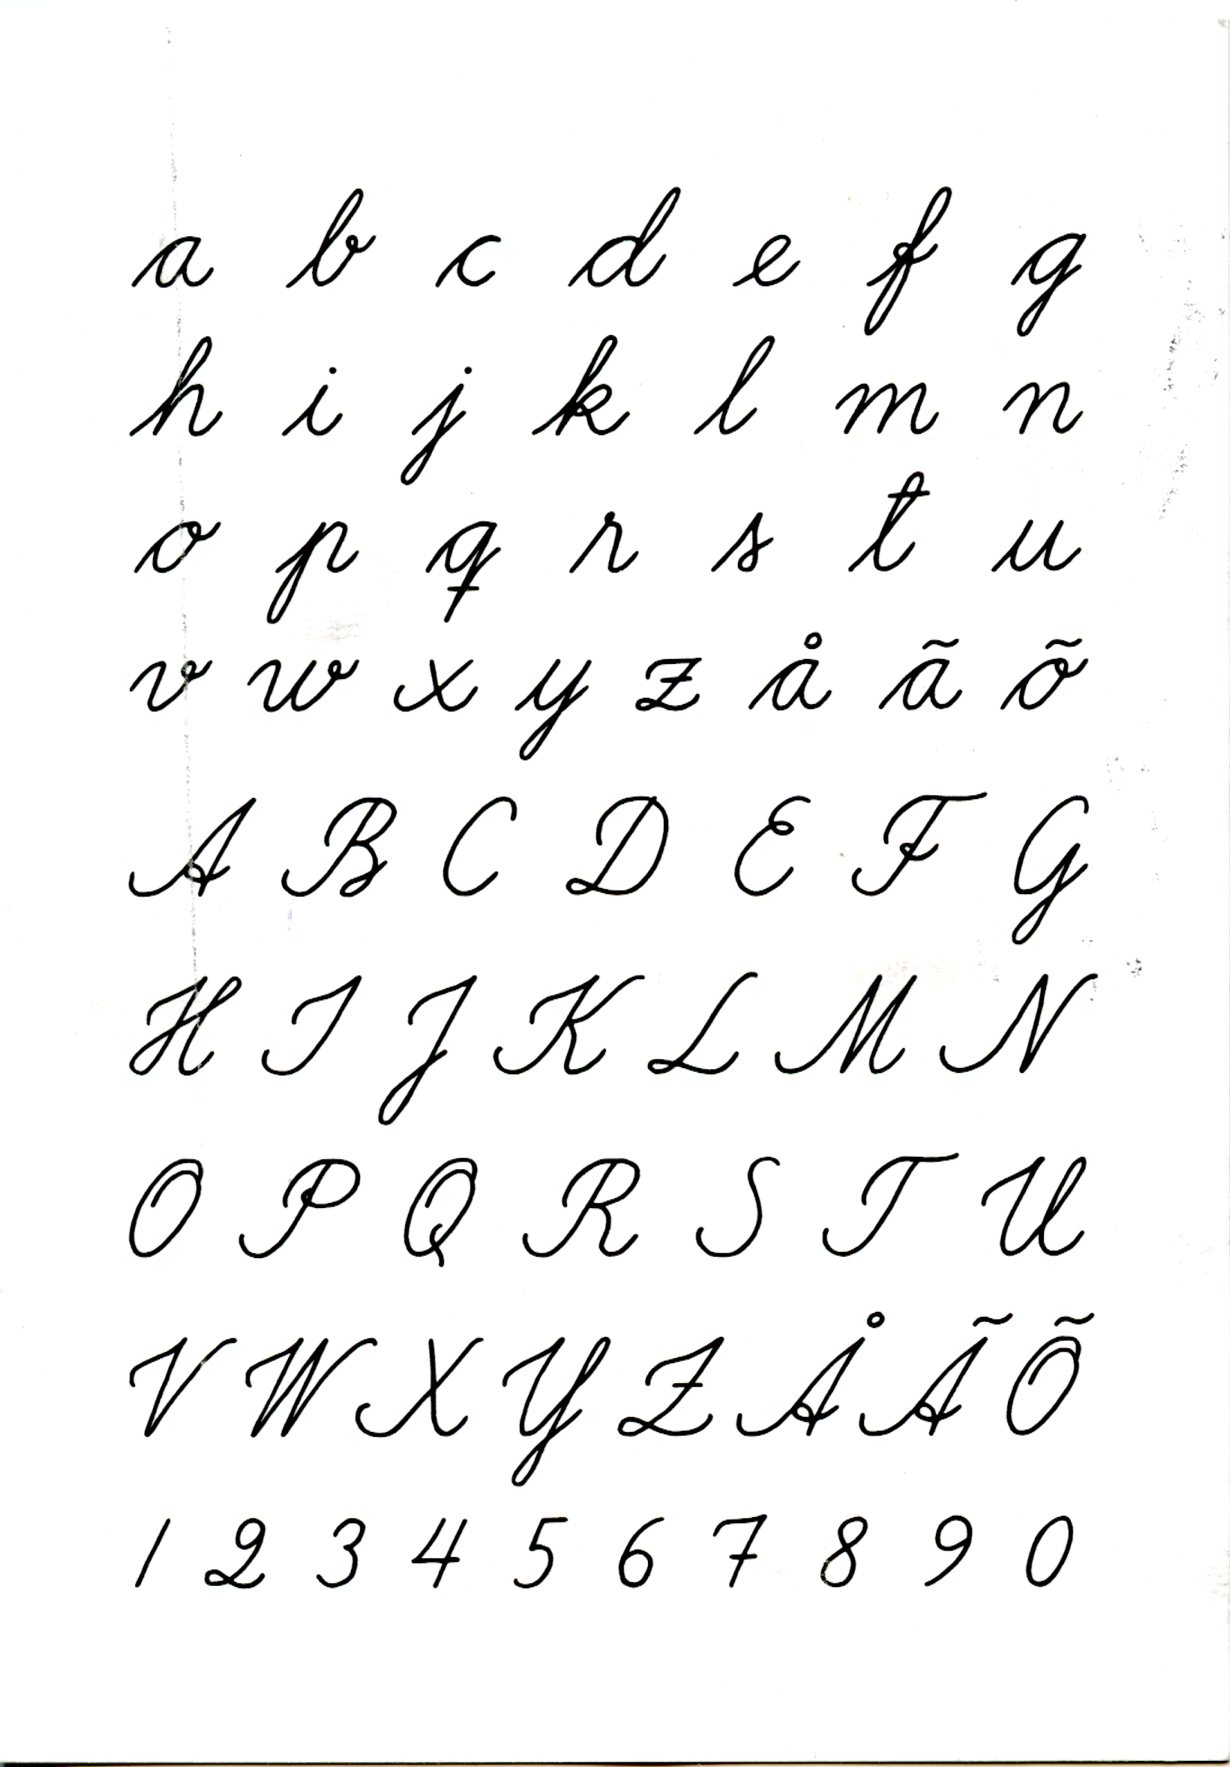 a b c d e f g
h i j k l m n
o p q r s t u
v w x y z å ã õ
A B C D E F G
H I J K L M N
O P Q R S T U
V W X Y Z Å Ã Õ
1 2 3 4 5 6 7 8 9 0